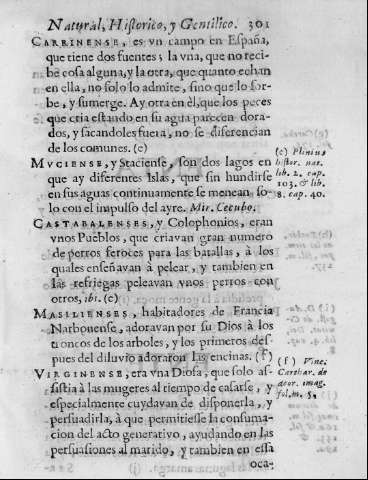 Natural, Historico, y Gentilico. 301
CARRINENSE, es vn campo en España,
que tiene dos fuentes; la vna, que no reci-
be cosa alguna, y la otra, que quanto echan
en ella, no solo lo admite, sino que lo sor-
be, y sumerge. Ay otra en èl, que los peces
que cria estando en su agua parecen dora-
dos, y sacandoles fuera, no se diferencian
de los comunes. (e)
MVCIENSE, y Staciense, son dos lagos en
que ay diferentes Islas, que sin hundirse
en sus aguas continuamente se menean so-
lo con el impulso del ayre. Mir. Cecubo.
(e) Plinius
histor. nat.
lib. 2. cap.
103. & lib.
8. cap. 40.
CASTABALENSES, y Colophonios, eran
vnos Pueblos, que criavan gran numero
de perros feroces para las batallas, à los
quales enseñavan à pelear, y tambien en
las refriegas peleavan vnos perros con
otros, ibi. (e)
MASILIENSES, habitadores de Francia
Narbonense, adoravan por su Dios à los
troncos de los arboles, y los primeros des-
pues del diluvio adoraron las encinas. (f)
VIRGINENSE, era vna Diosa, que solo as-
sistia à las mugeres al tiempo de casarse, y
especialmente cuydavan de disponerla, y
persuadirla, à que permitiesse la consuma-
cion del acto generativo, ayudando en las
persuasiones al marido, y tambien en essa
(f) Vinc.
Carthar. de
deor. imag.
fol. m.
oca-